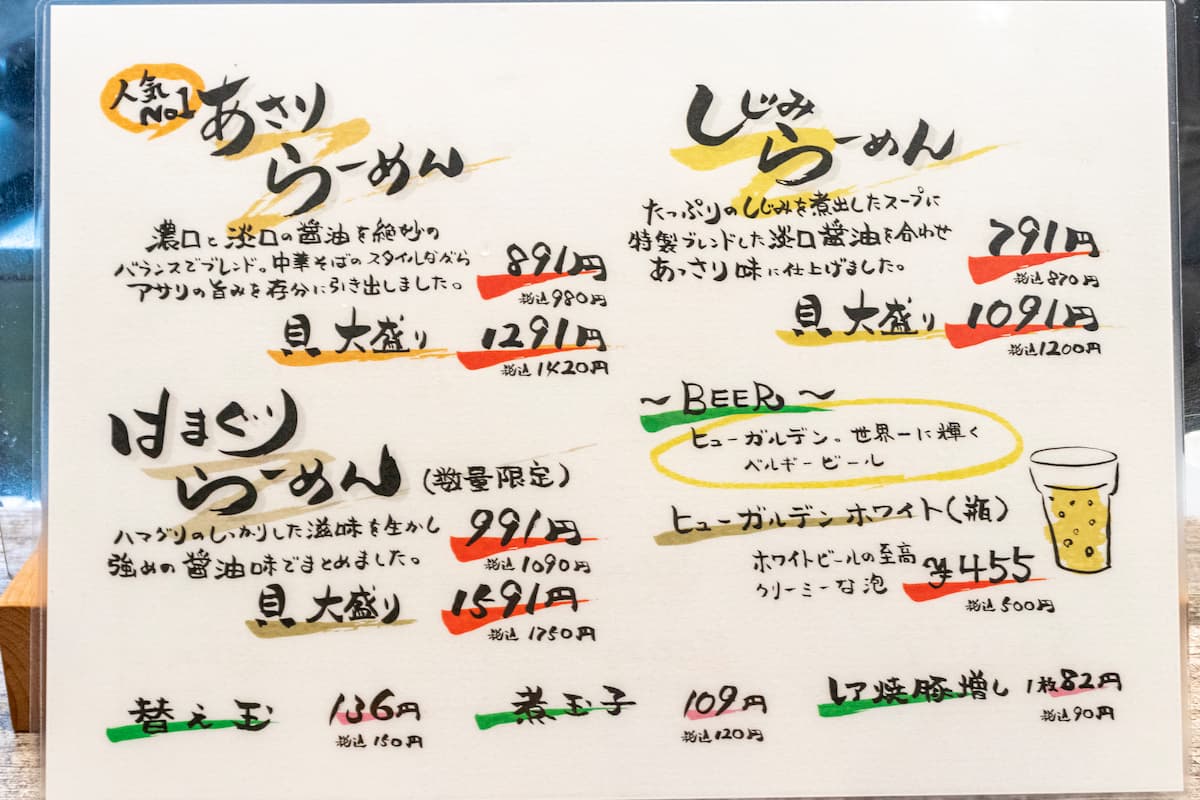 人気
No1
あさり
らーめん
濃口と淡口の醤油を絶妙の
バランスでブレンド。中華そばのスタイルながら
アサリの旨みを存分に引き出しました。
891円
税込980円
貝 大盛り 1291円
税込1420円
しじみ
らーめん
たっぷりのしじみを煮出したスープに
特製ブレンドした淡口醤油を合わせ
あっさり味に仕上げました。
791円
税込870円
貝 大盛り 1091円
税込1200円
はまぐり
らーめん(数量限定)
ハマグリのしっかりした滋味を生かし
強めの醤油味でまとめました。
991円
税込1090円
貝 大盛り 1591円
税込1750円
〜BEER〜
ヒューガルデン。世界一に輝く
ベルギービール
ヒューガルデンホワイト(瓶)
ホワイトビールの至高
クリーミーな泡
¥455
税込500円
替え玉 136円
税込150円
煮玉子 109円
税込120円
レア焼豚増し 1枚82円
税込90円